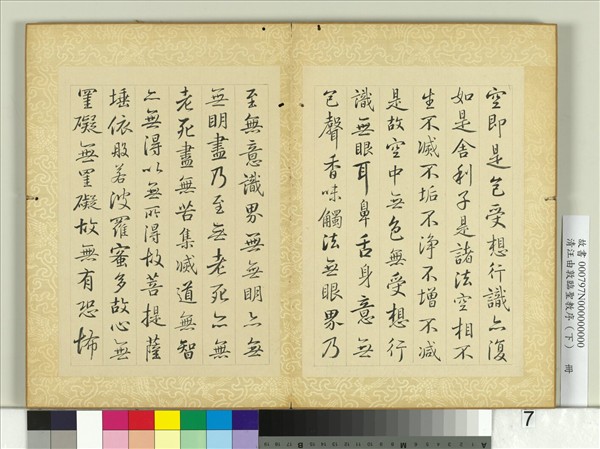 空即是色受想行識亦復
如是舍利子是諸法空相不
生不滅不垢不淨不增不減
是故空中無色無受想行
識無眼耳鼻舌身意無
色聲香味觸法無眼界乃
至無意識界無無明亦無
無明盡乃至無老死亦無
老死盡無苦集滅道無智
亦無得以無所得故菩提薩
埵依般若波羅蜜多故心無
罣礙無罣礙故無有恐怖
故書 000797N000000000
清汪由敦臨聖教序(下) 冊
7